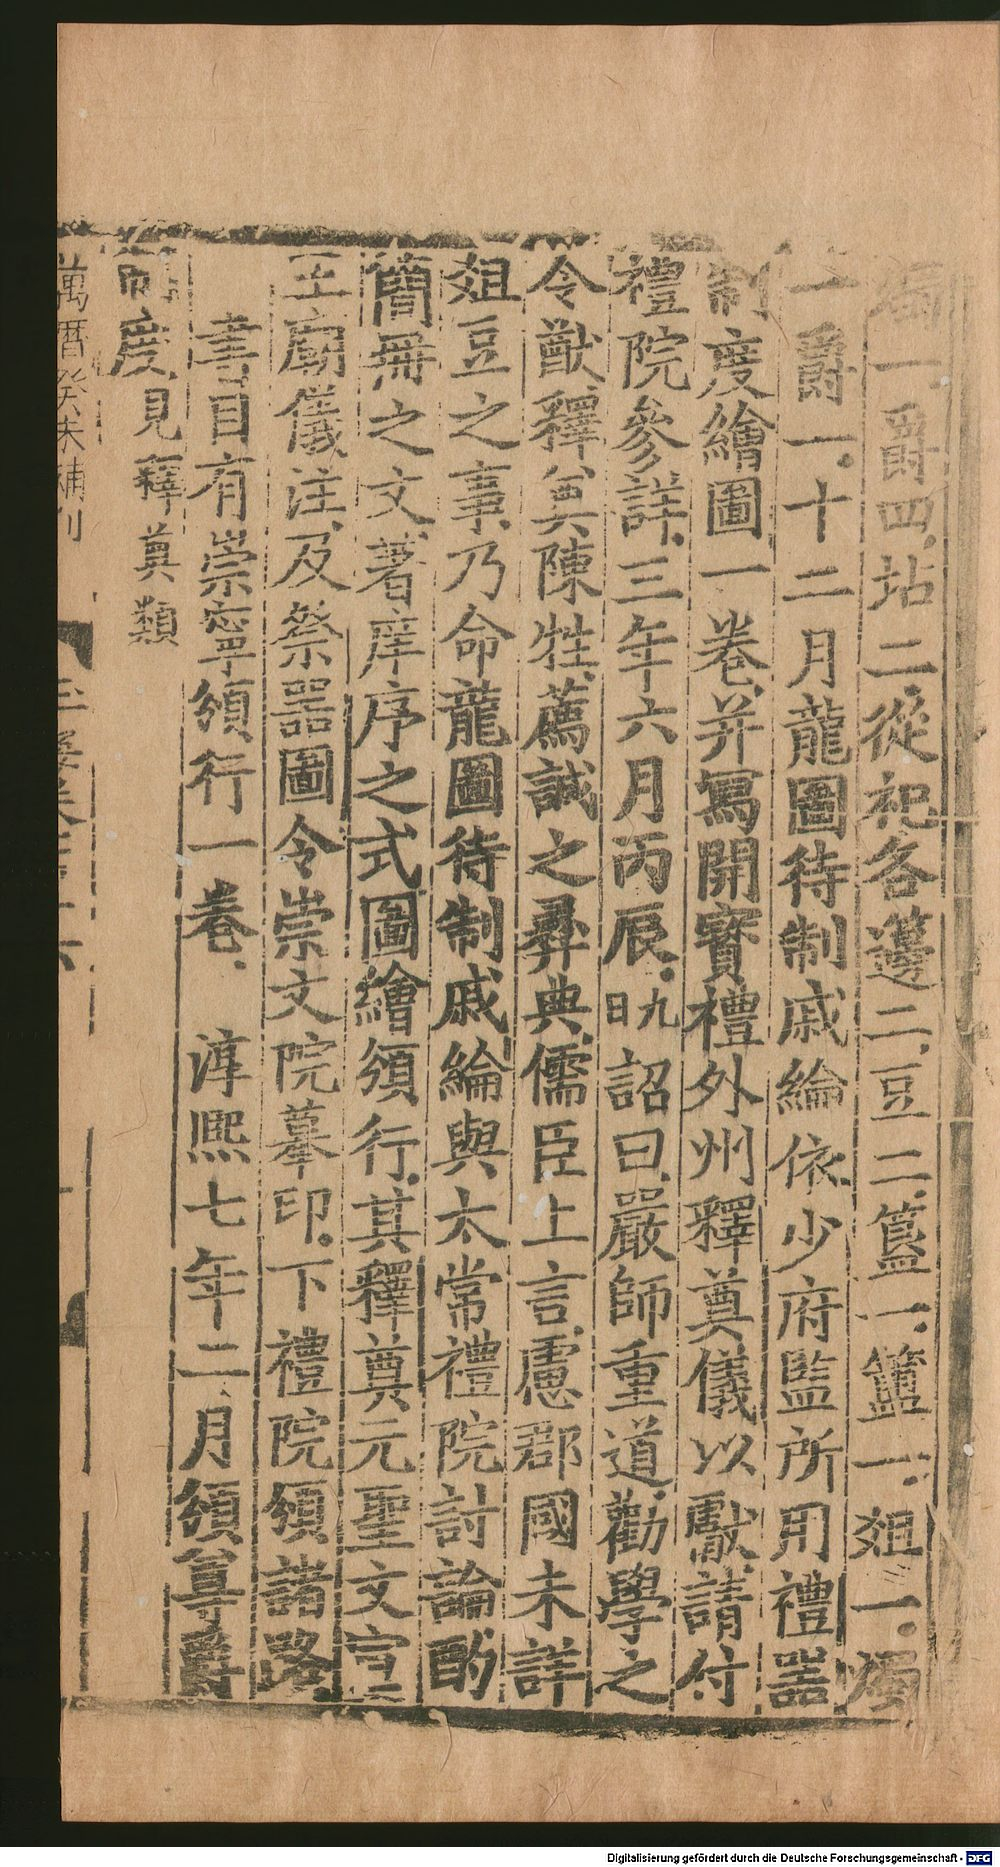 燭一爵四坫二從祀各籩二豆二簋一簠一俎一燭
一爵一十二月龍圖待制戚綸依少府監所用禮器
制度繪圖一卷并寫開寶禮外州釋奠儀以獻請付
禮院參詳三年六月丙辰九日詔曰嚴師重道勸學之
令猷釋奠陳牲薦誠之彝典儒臣上言慮郡國未詳
俎豆之事乃命龍圖待制戚綸與太常禮院討論酌
簡冊之文著庠序之式圖繪頒行其釋奠元聖文宣
王廟儀注及祭器圖令崇文院摹印下禮院頒諸路
書目有崇寧頒行一卷 淳熙七年二月頒尊爵
制度見釋奠類
萬曆癸未補刊
玉海卷
Digitalisierung gefördert durch die Deutsche Forschungsgemeinschaft - DFG